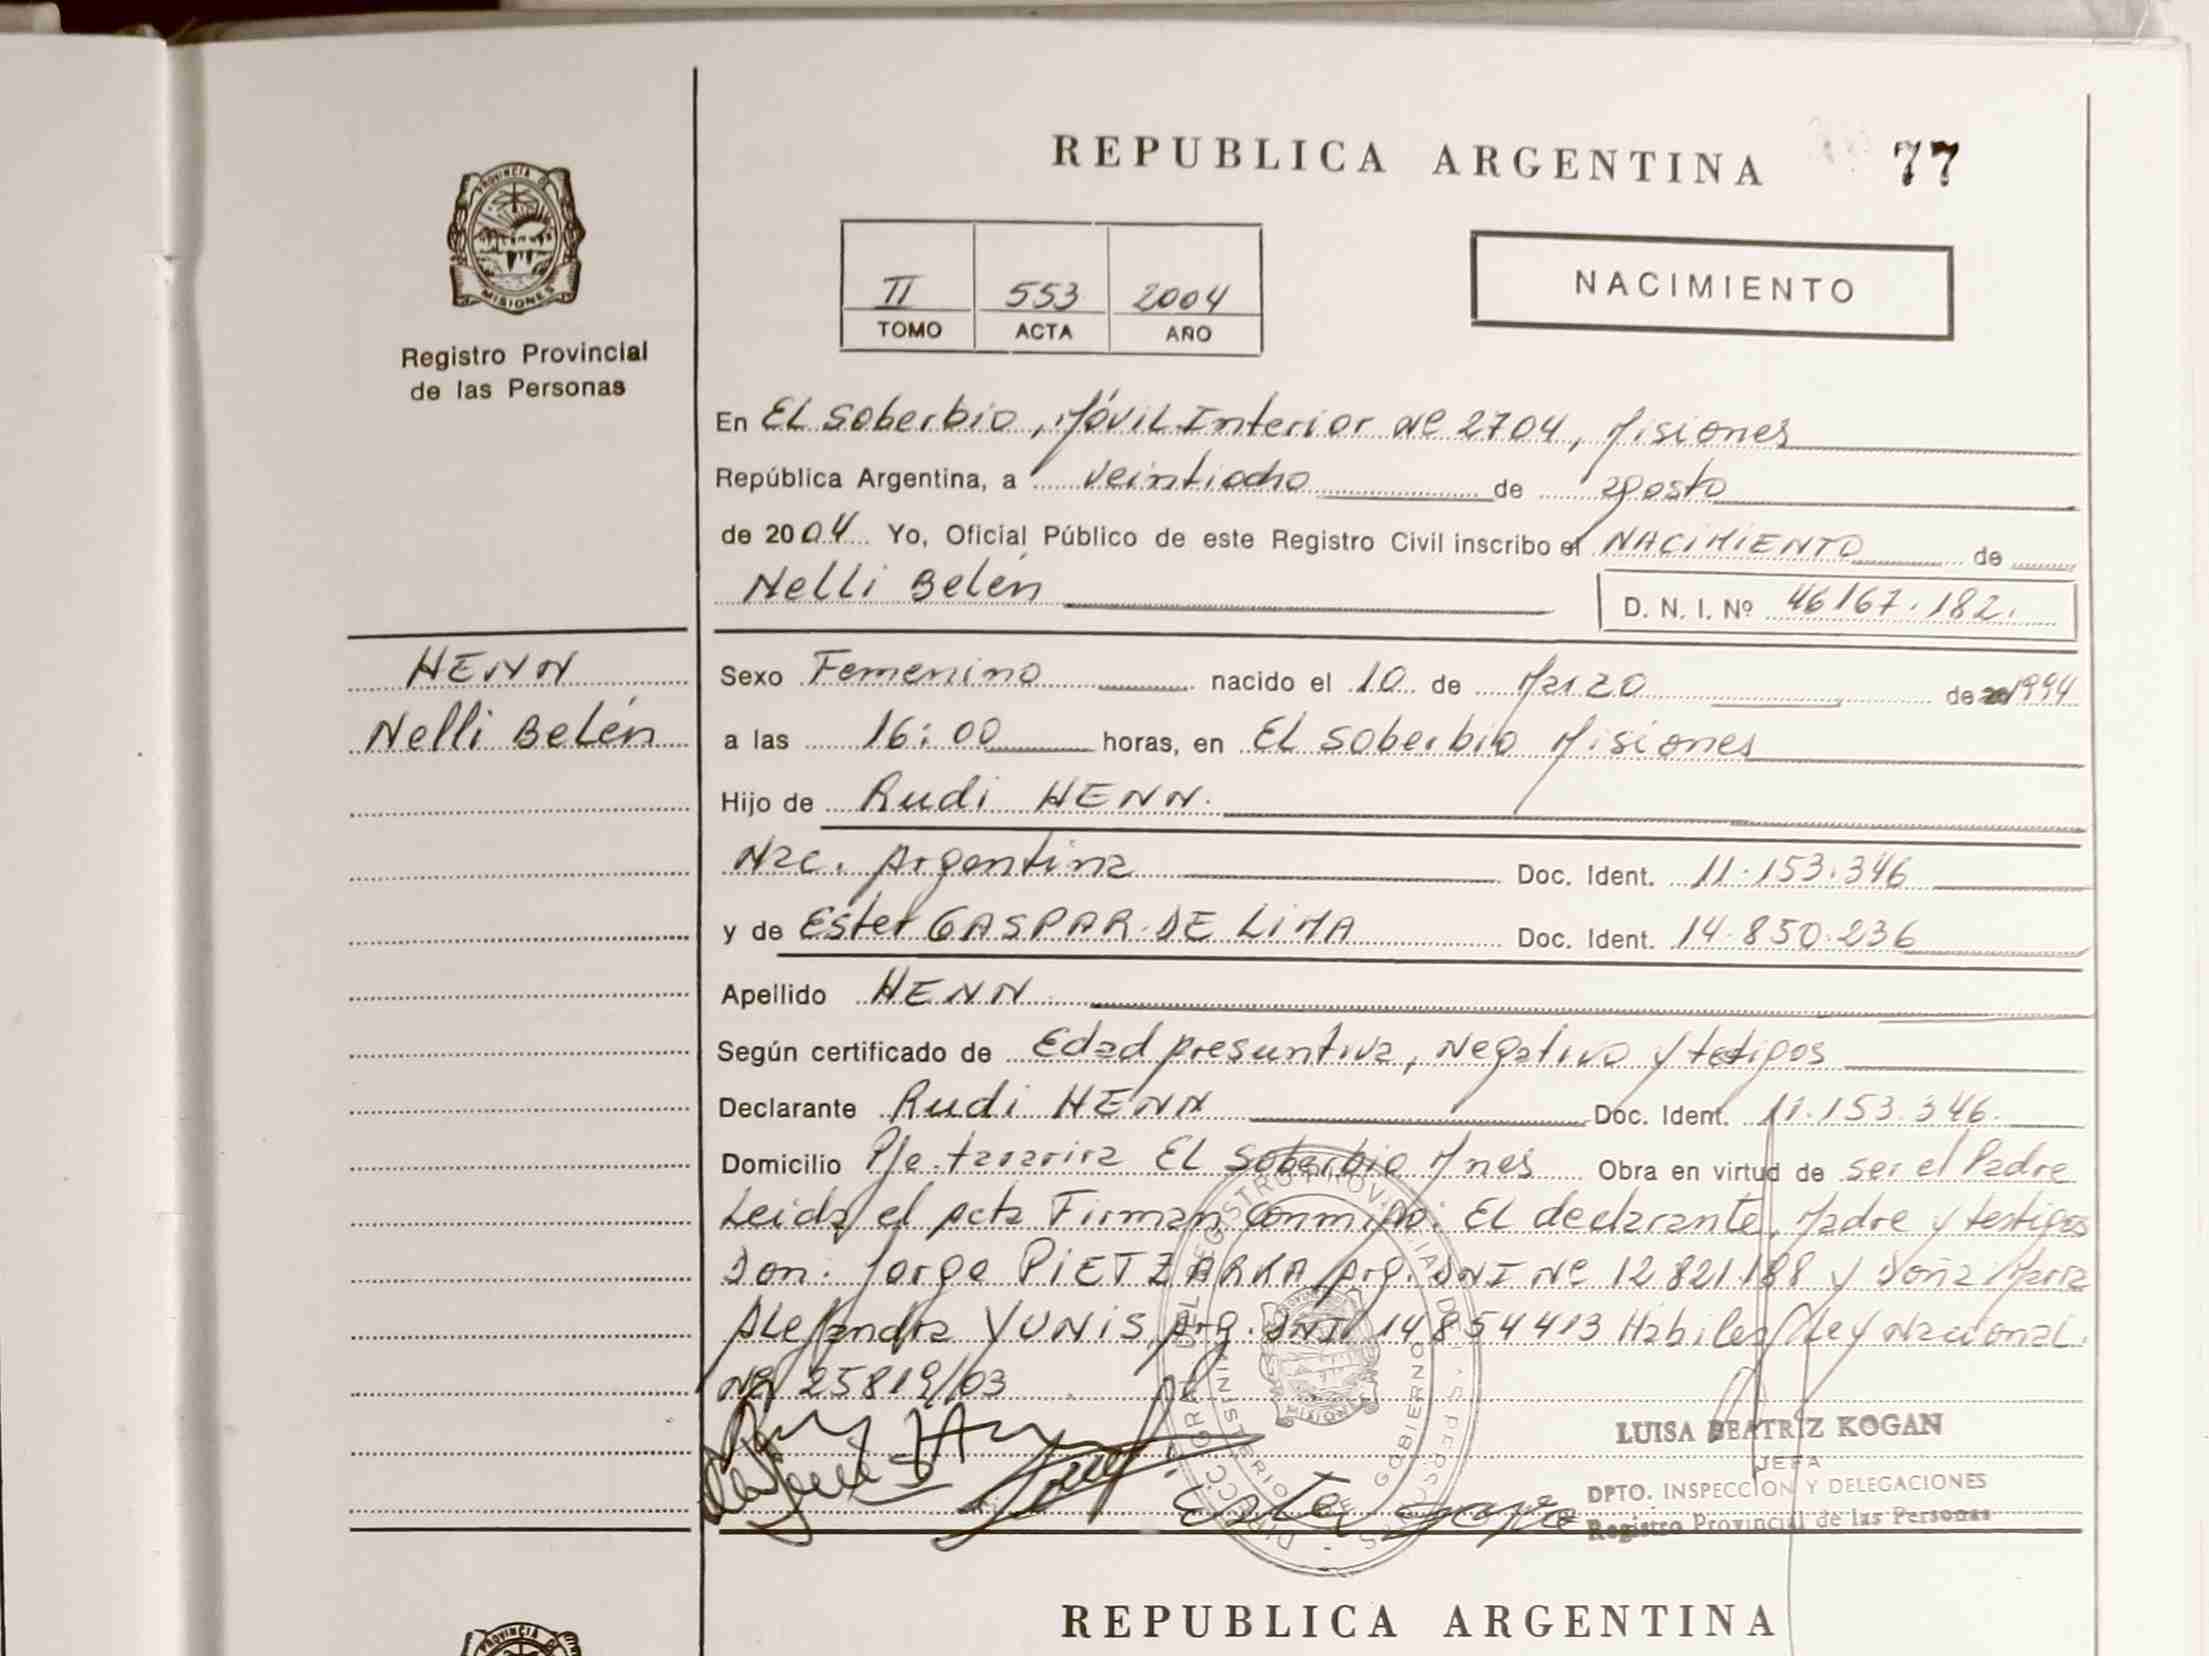 REPUBLICA ARGENTINA 77
PROVINCIA DE
MISIONES
Registro Provincial
de las Personas
II 553 2004
TOMO ACTA AÑO
NACIMIENTO
En El Soberbio, Móvil Interior Nº 2704, Misiones
República Argentina, a veintiocho de agosto
de 2004 Yo, Oficial Público de este Registro Civil inscribo el NACIMIENTO de
Nelli Belén D. N. I. Nº 46167.182.
HENN
Nelli Belén
Sexo Femenino nacido el 10 de Marzo de 1994
a las 16:00 horas, en El Soberbio Misiones
Hijo de Rudi HENN.
Nac. Argentina Doc. Ident. 11.153.346
y de Ester GASPAR DE LIMA Doc. Ident. 14.850.236
Apellido HENN
Según certificado de Edad presuntiva, Negativo y testigos
Declarante Rudi HENN Doc. Ident. 11.153.346.
Domicilio Pje. El Soberbio Mnes Obra en virtud de ser el Padre
Leida el acta Firman conmigo: El declarante, Madre y testigos
Don: Jorge PIETZARKA Arg. DNI Nº 12821188 y Doña Maria
Alejandra YUNIS Arg. DNI 14854413 Habiles Ley Nacional.
Nº 25819/03
LUISA BEATRIZ KOGAN
JEFA
DPTO. INSPECCION Y DELEGACIONES
Registro Provincial de las Personas
REPUBLICA ARGENTINA
PROVINCIA DE